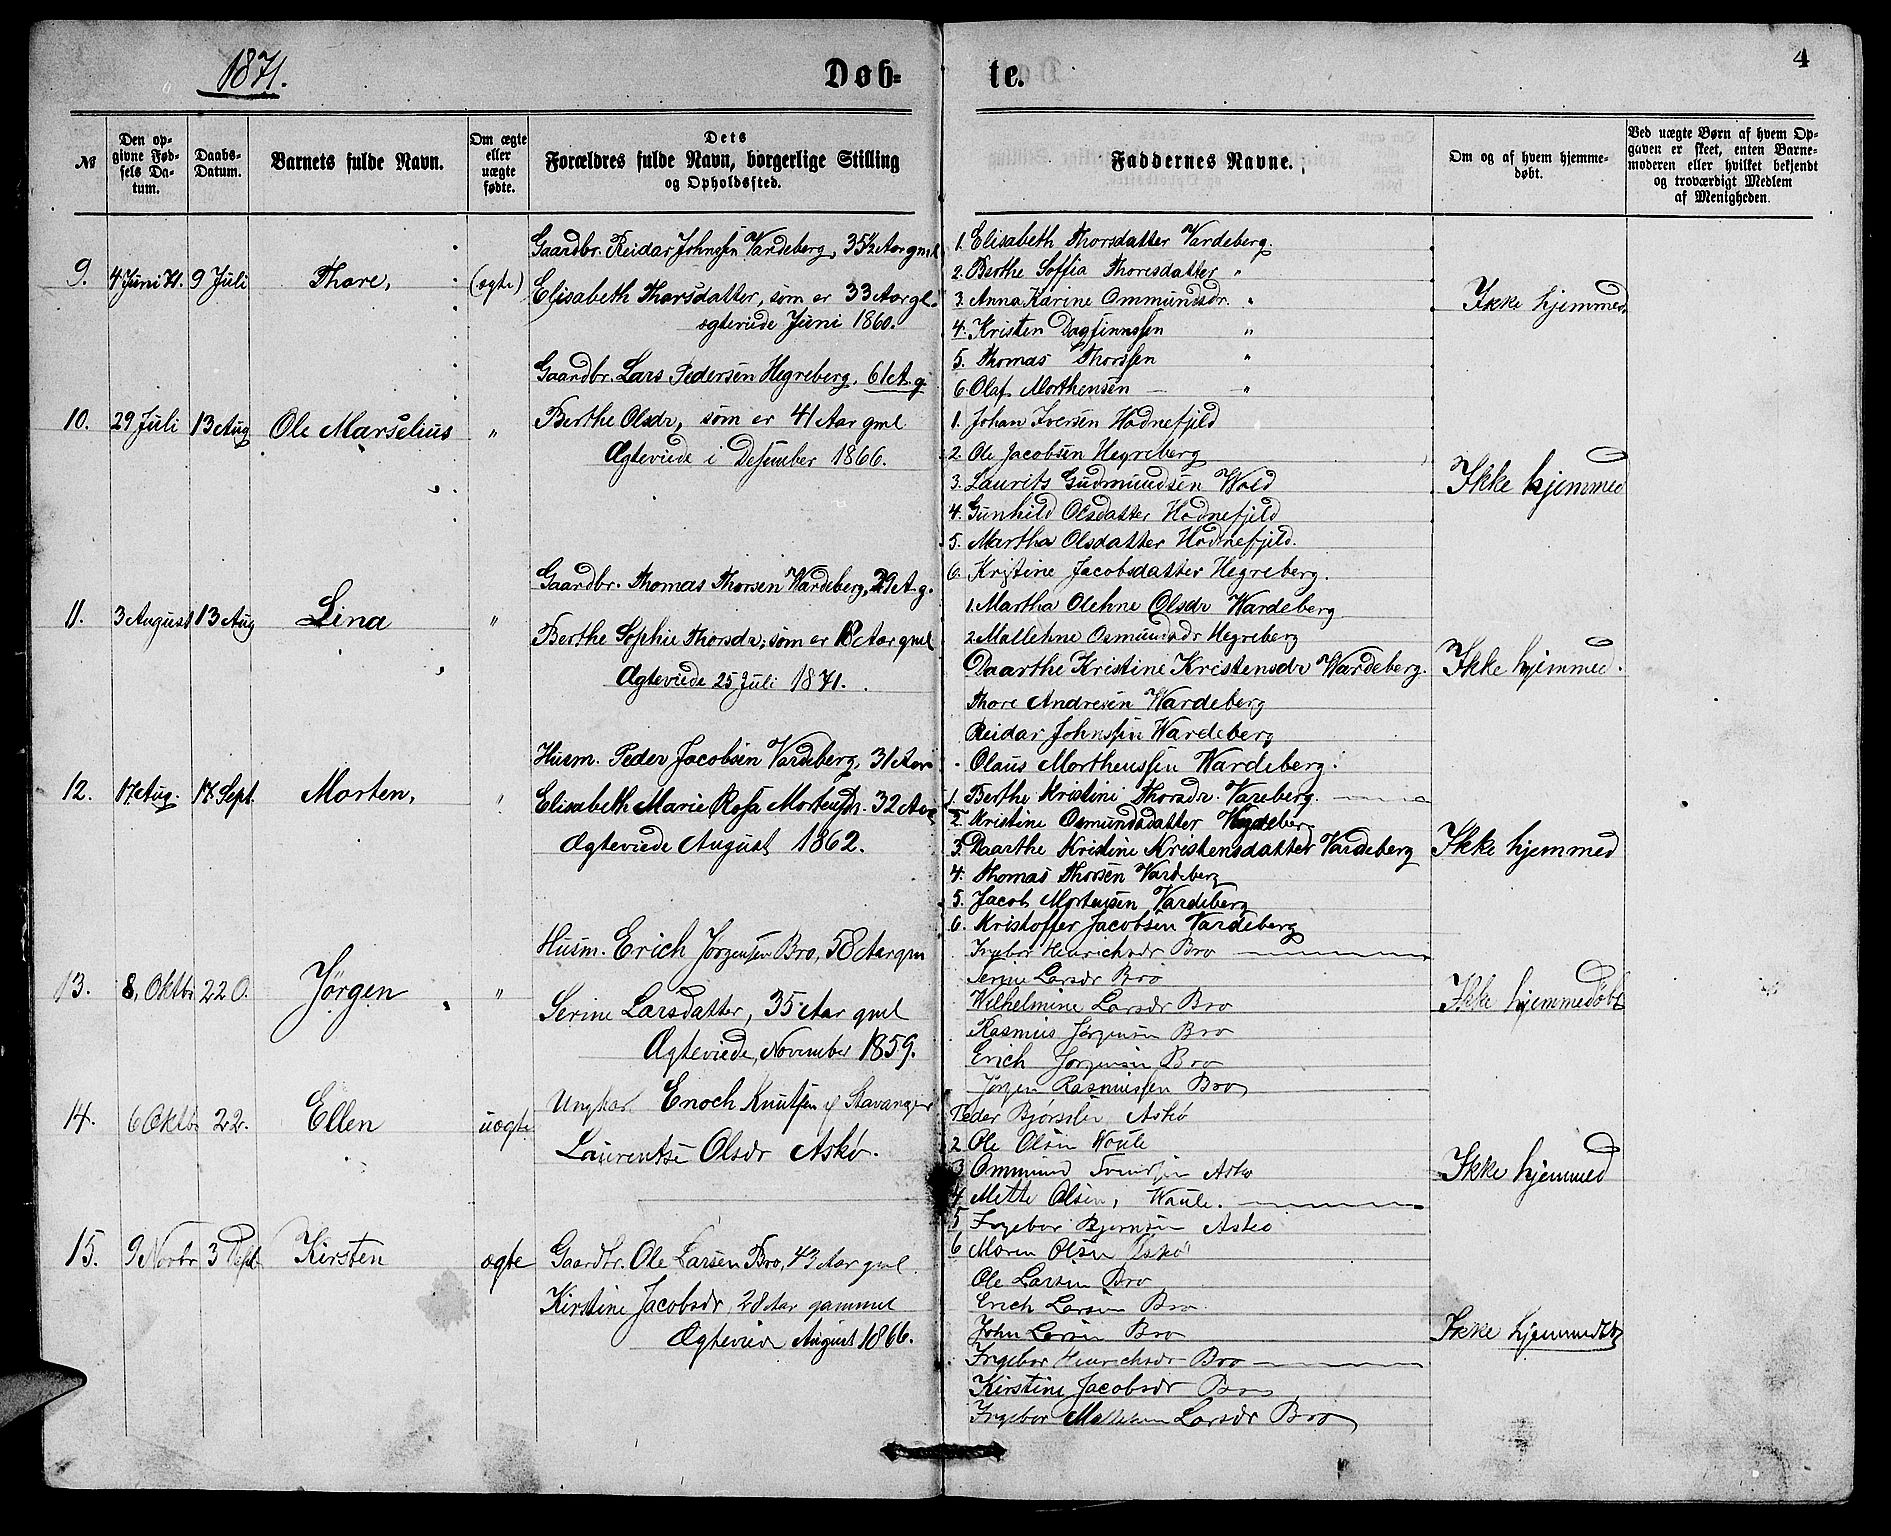 1871.
Døb=
te.
4
№
Den op-
givne Fød-
sels Da-
tum.
Daabs-
Datum.
Barnets fulde Navn.
Om ægte
eller
uægte
fødte.
Dets
Forældres fulde Navn, borgerlige Stilling
og Opholdssted.
Faddernes Navne.
Om og af hvem hjemme-
døbt.
Ved uægte Børn af hvem Op-
gaven er skeet, enten Barne-
moderen eller hvilket bekjendt
og troværdigt Medlem
af Menigheden.
9. 4 Juni 71. 9 Juli Thore, (ægte)
Gaardbr. Reidar Johnssen Vardeberg, 35½ Aar gml
Elisabeth Thorsdatter, som er 33 Aar gl.
ægteviede Juni 1860.
1. Elisabeth Thorsdatter Vardeberg.
2. Berthe Soffia Thoresdatter "
3. Anna Karine Ommundsdr. "
4. Kristen Dagfinnssen "
5. Thomas Thorssen "
6. Olaf Morthensen "
Ikke hjemmed.
10. 29 Juli 13 Aug Ole Marselius "
Gaardbr. Lars Pedersen Hegreberg, 61 A. g
Berthe Olsdr, som er 41 Aar gml
Ægteviede i Desember 1866.
1. Johan Iversen Hodnefjeld
2. Ole Jacobsen Hegreberg
3. Laurits Gudmundsen Wold
4. Gunhild Olsdatter Hodnefjeld
5. Martha Olsdatter Hodnefjeld.
6. Kristine Jacobsdatter Hegreberg.
Ikke hjemmed
11. 3 August 13 Aug Lina "
Gaardbr. Thomas Thorsen Wardeberg, 29 A. g.
Berthe Sophie Thorsdr, som er 18 Aar gml
Ægteviede 25 Juli 1871.
1. Martha Olehne Olsdr Wardeberg
2. Mallehne Osmundsdr Hegreberg
Daarthe Kristine Kristensdr Wardeberg.
Thore Andresen Wardeberg
Reidar Johnssen Wardeberg
Olaus Morthenssen Wardeberg.
Ikke hjemmed.
12. 17 Aug. 17 Sept. Morten, "
Husm. Peder Jacobsen Vardeberg, 31 Aar
Elisabeth Marie Rosa Mortensdr. 32 Aar
Ægteviede August 1862.
1. Berthe Kristine Thorsdr. Vareberg.
2. Kristine Osmundsdatter
3. Daarthe Kristine Kristensdatter Vardeberg
4. Thomas Thorsen Vardeberg
5. Jacob Mortensen Vardeberg
6. Kristoffer Jacobsen Vardeberg
Ikke hjemmed
13. 8. Oktb. 22 O. Jørgen "
Husm. Erich Jørgensen Bro, 58 Aar gml
Serine Larsdatter, 35 Aar gml
Ægteviede, November 1859.
Ingebor Henrichsdr Bro
Serine Larsdr Bro
Wilhelmine Larsdr Bro
Rasmus Jørgensen Bro
Erich Jørgensen Bro
Jørgen Rasmussen Bro
Ikke hjemmedøbt
14. 6 Oktb. 22. Ellen uægte
Ungkar. Enoch Knutsen af Stavanger
Laurentse Olsdr Askø.
Peder Askø
2 Ole Olsen Woule
3 Ommund Askø
4 Mette Olsen, Woule.
5 Ingebor Bjørnsen Askø
6 Maren Olsen Askø
Ikke hjemmed
15. 9 Novbr 3 Kirsten ægte
Gaardbr. Ole Larsen Bro, 43 Aar gml
Kirstine Jacobsdr, 28 Aar gammel
Ægteviede August 1866.
Ole Larsen Bro
Erich Larsen Bro
John Larsen Bro
Ingebor Henrichsdr Bro
Kirstine Jacobsdr Bro
Ingebor Larsdr Bro
Ikke hjemmedøbt